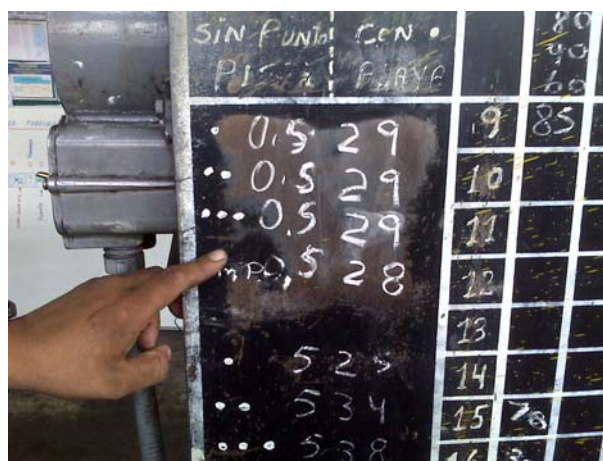 SIN PUNTO CON •
• 0,5 29
•• 0,5 29
••• 0,5 29
0,5 28
• 525
•• 534
••• 538
80
90
60
9 85
10
11
12
13
14
15 78